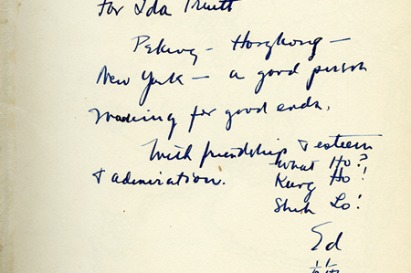 For Ida Pruitt
Peking – Hongkong –
New York – a good person
working for good ends.
With friendship & esteem
& admiration.
What Ho?
Kung Ho!
Shih Lo!
Ed